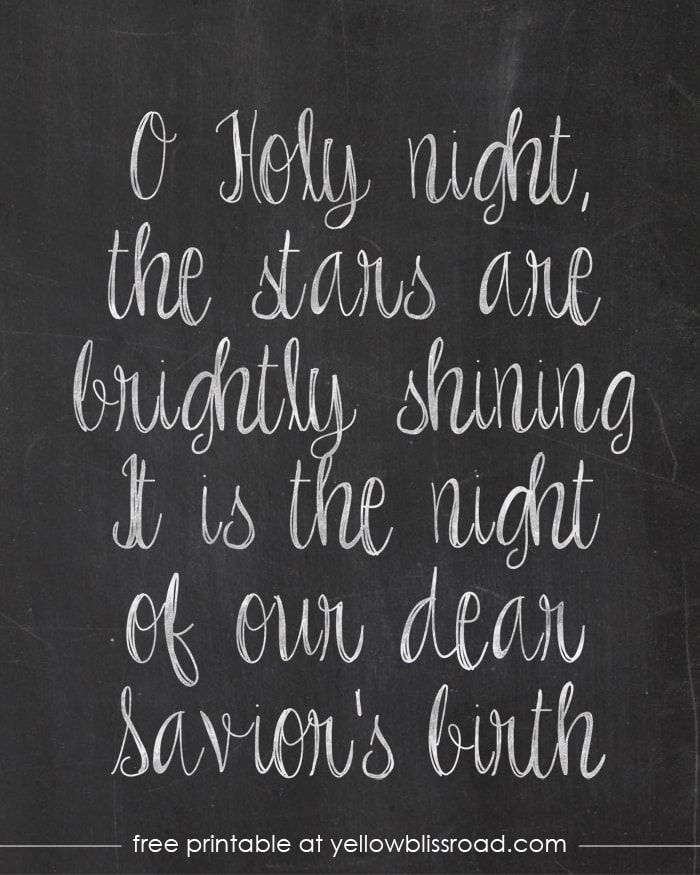 O Holy night,
the stars are
brightly shining
It is the night
of our dear
savior's birth
free printable at yellowblissroad.com